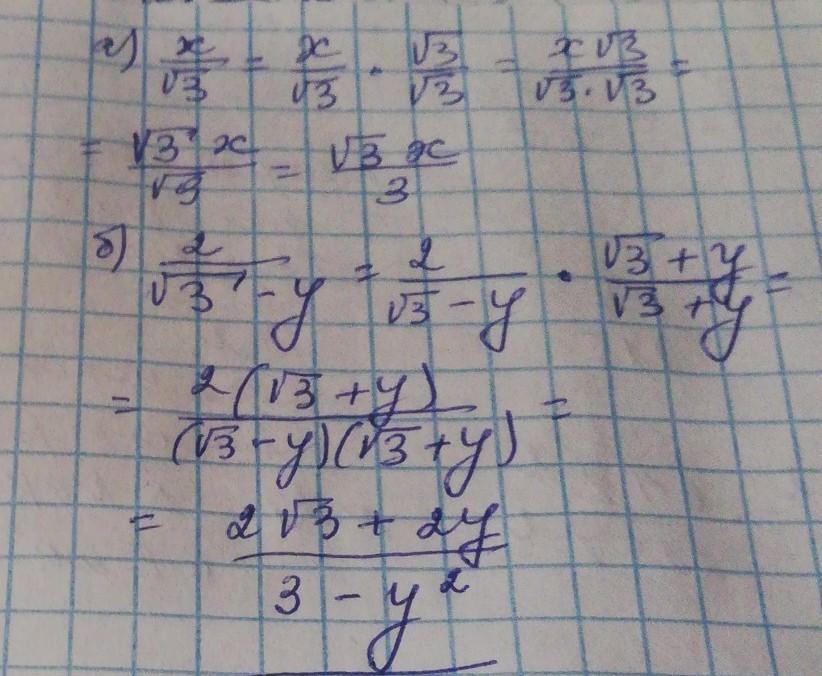 а) x/√3 = x/√3 · √3/√3 = x√3/√3·√3 =
= √3 x/√3 = √3 x/3
б) 2/√3 - y = 2/√3 - y · √3 + y/√3 + y =
= 2(√3 + y)/(√3 - y)(√3 + y) =
= 2√3 + 2y/3 - y²